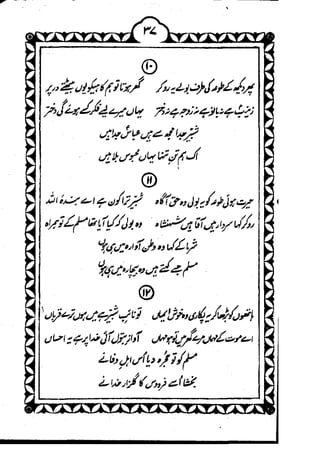 ۳۷
۱۰
پھر دیکھ کے طوعہ کی طرف بولے یہ رو کر گھر ہوتا تو ہم کاہیکو یوں بیٹھتے در پر
زینبؑ ہے نہ بانو ہے نہ زوجہ ہے نہ دختر یہاں میرے لیے فکر کسے ہوئے گی دختر
شبیرؑ جدا مجھ سے ہیں عباسؑ جدا ہیں
اک ہم تن تنہا یہاں محبوس بلا ہیں
۱۱
حیرت ہوئی طوعہ کو یہ بولی وہ حق آگاہ شبیرؑ ترا کون ہے اے بندۂ اللہ
رو کر کہا سردار ہیں آقا ہیں شہنشاہ وہ بولی کہ کیا آیا تھا مسلمؑ کے تو ہمراہ
شرما کے کہا وہ وطن آوارہ ہمیں ہیں
مسلمؑ جسے کہتے ہیں وہ بیچارہ ہمیں ہیں
۱۲
ہاتھوں کو اٹھا کر یہ پکاری وہ خوش ایماں تو نائب شبیرؑ ہے میں ہوں ترے قرباں
اے موت کے مہماں مرے گھر میں تو ہو مہماں آواز بتولؑ آئی خدا پر ہے یہ احساں
مسلمؑ کو تو حجرہ دیا اس اہل وفا نے
بخشا اسے فردوس کا گلزار خدا نے